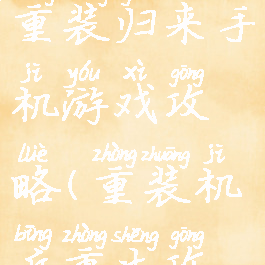 重装归来手
jī yóu xì gōng
机游戏攻
lüè zhòng zhuāng jī
略(重装机
bīng zhòng shēng gōng
兵重生攻